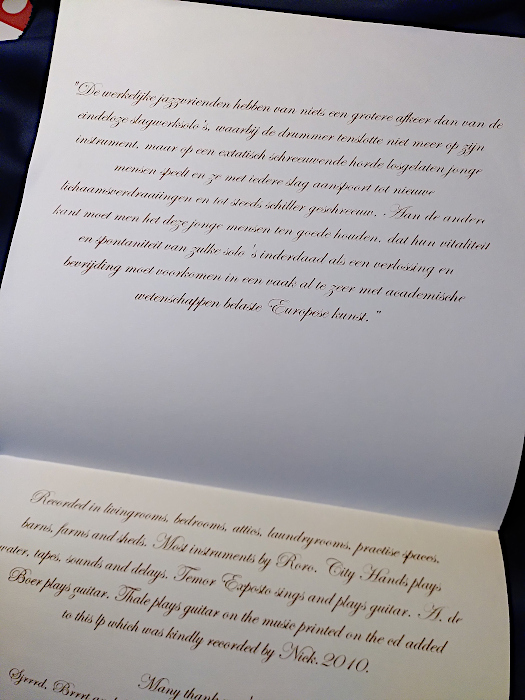 "De werkelijke jazzvrienden hebben van niets een grotere afkeer dan van de
eindeloze slagwerksolo's, waarbij de drummer tenslotte niet meer op zijn
instrument, maar op een extatisch schreeuwende horde losgelaten jonge
mensen speelt en ze met iedere slag aanspoort tot nieuwe
lichaamsverdraaiingen en tot steeds schiller geschreeuw. Aan de andere
kant moet men het deze jonge mensen ten goede houden, dat hun vitaliteit
en spontaniteit van zulke solo's inderdaad als een verlossing en
bevrijding moet voorkomen in een vaak al te zeer met academische
wetenschappen belaste Europese kunst."
Recorded in livingrooms, bedrooms, attics, laundryrooms, practise spaces,
barns, farms and sheds. Most instruments by Roro. City Hands plays
water, tapes, sounds and delays. Temor Esposto sings and plays guitar. A. de
Boer plays guitar. Thale plays guitar on the music printed on the cd added
to this lp which was kindly recorded by Nick. 2010.
Many
Sjeerd,